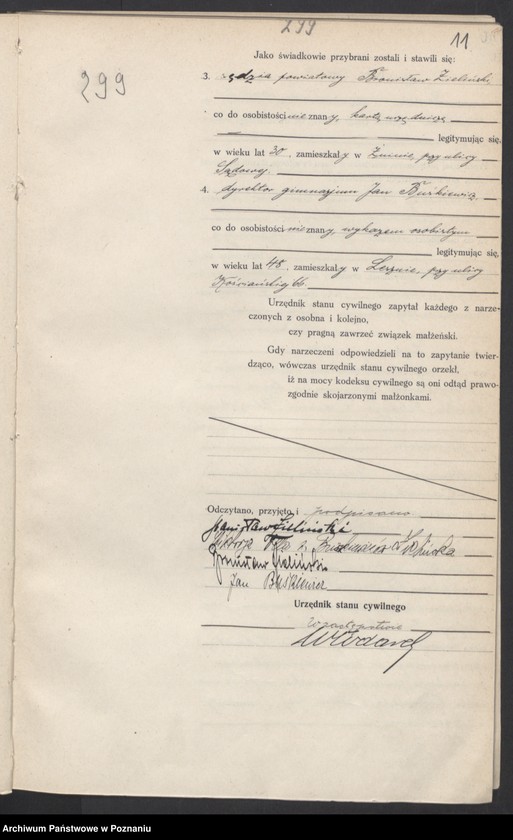 299
11
299
Jako świadkowie przybrani zostali i stawili się:
3. sędzia powiatowy Bronisław Zieliński
co do osobistości nieznany, kartą urzędniczą
legitymując się,
w wieku lat 30, zamieszkały w Żninie, przy ulicy
Sądowej.
4. dyrektor gimnazjum Jan
co do osobistości nieznany, wykazem osobistym
legitymując się,
w wieku lat 48, zamieszkały w Lesznie, przy ulicy
urzędnik stanu cywilnego zapytał każdego z narze-
czonych z osobna i kolejno,
czy pragną zawrzeć związek małżeński.
Gdy narzeczeni odpowiedzieli na to zapytanie twier-
dząco, wówczas urzędnik stanu cywilnego orzekł,
iż na mocy kodeksu cywilnego są oni odtąd prawo-
zgodnie skojarzonymi małżonkami.
Odczytano, przyjęto i podpisano
Stanisław Zieliński
Zielińska
Bronisław Zieliński
Jan
Urzędnik stanu cywilnego
w zastępstwie
Archiwum Państwowe w Poznaniu